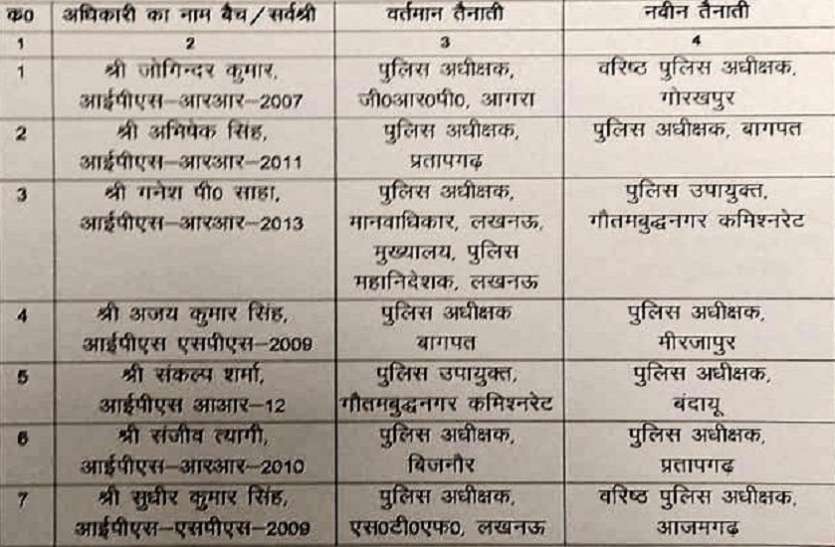 क0 अधिकारी का नाम बैच/सर्वश्री वर्तमान तैनाती नवीन तैनाती
1 2 3 4
1 श्री जोगिन्दर कुमार, पुलिस अधीक्षक, वरिष्ठ पुलिस अधीक्षक,
आईपीएस–आरआर–2007 जी0आर0पी0, आगरा गोरखपुर
2 श्री अभिषेक सिंह, पुलिस अधीक्षक, पुलिस अधीक्षक, बागपत
आईपीएस–आरआर–2011 प्रतापगढ़
3 श्री गनेश पी0 साहा, पुलिस अधीक्षक, पुलिस उपायुक्त,
आईपीएस–आरआर–2013 मानवाधिकार, लखनऊ, गौतमबुद्धनगर कमिश्नरेट
मुख्यालय, पुलिस
महानिदेशक, लखनऊ
4 श्री अजय कुमार सिंह, पुलिस अधीक्षक पुलिस अधीक्षक,
आईपीएस एसपीएस–2009 बागपत मीरजापुर
5 श्री संकल्प शर्मा, पुलिस उपायुक्त, पुलिस अधीक्षक,
आईपीएस आआर–12 गौतमबुद्धनगर कमिश्नरेट बंदायू
6 श्री संजीव त्यागी, पुलिस अधीक्षक, पुलिस अधीक्षक,
आईपीएस–आरआर–2010 बिजनौर प्रतापगढ़
7 श्री सुधीर कुमार सिंह, पुलिस अधीक्षक, वरिष्ठ पुलिस अधीक्षक,
आईपीएस–एसपीएस–2009 एस0टी0एफ0, लखनऊ आजमगढ़